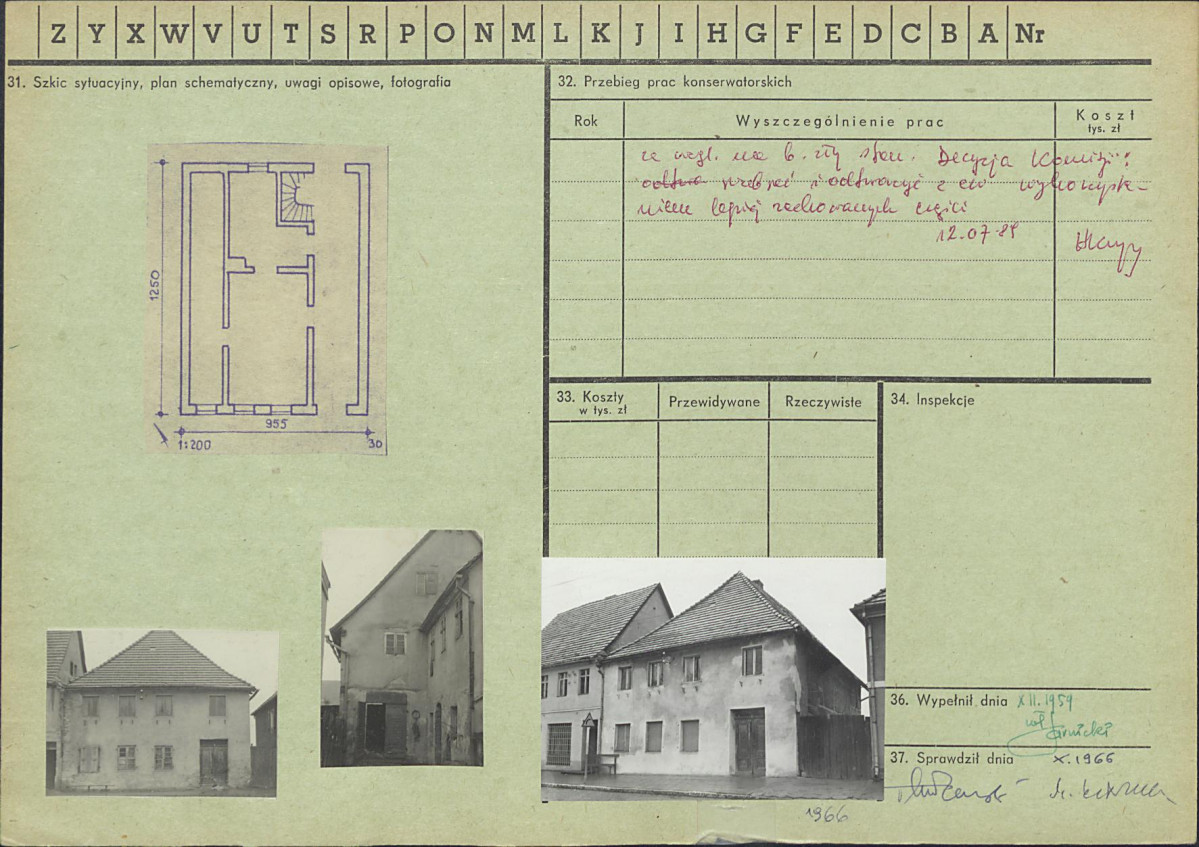 Z Y X W V U T S R P O N M L K J I H G F E D C B A Nr
31. Szkic sytuacyjny, plan schematyczny, uwagi opisowe, fotografia
1250
955
1:200
30
32. Przebieg prac konserwatorskich
Rok
Wyszczególnienie prac
Koszt
tys. zł
ze wzgl. na b. zły stan. Decyzja Komisji:
rozebrać i odtworzyć z ew wykorzysta-
niem lepiej zachowanych części
12.07.84
33. Koszty
w tys. zł
Przewidywane
Rzeczywiste
34. Inspekcje
36. Wypełnił dnia XII.1959
37. Sprawdził dnia X.1966
1966